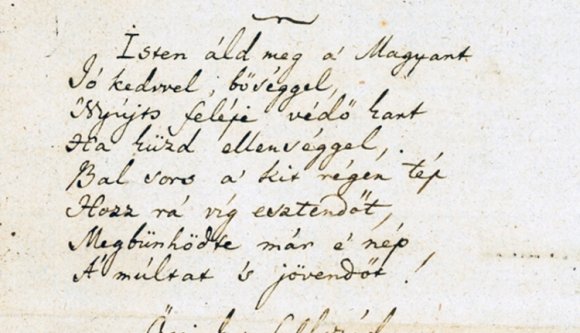 Isten áld meg a' Magyart
Jó kedvvel, bőséggel,
Nyújts feléje védő kart
Ha küzd ellenséggel,
Bal sors a' kit régen tép
Hozz rá víg esztendőt,
Megbűnhődte már e' nép
A' múltat 's jövendőt!